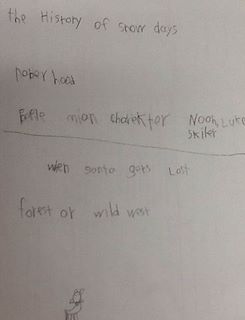 the History of snow days
rober hood
main charektor Noah, Luke
skiler
wen santa gets Lost
forest or wild west